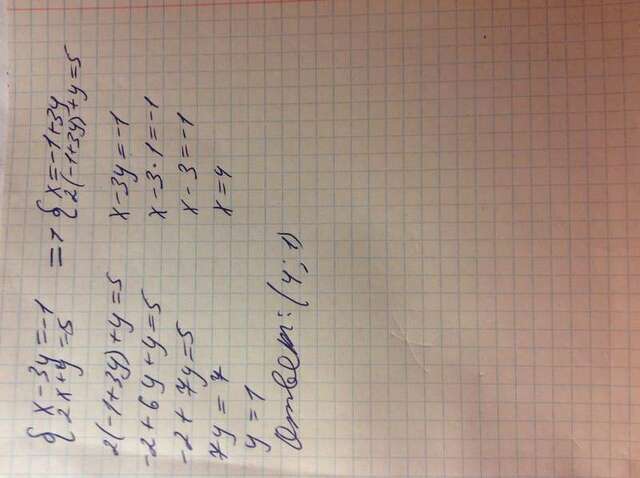 { x - 3y = -1 => { x = -1 + 3y
2x + y = 5 2(-1 + 3y) + y = 5
2(-1 + 3y) + y = 5
-2 + 6y + y = 5
-2 + 7y = 5
7y = 7
y = 1
x - 3y = -1
x - 3 · 1 = -1
x - 3 = -1
x = 4
Ответ: (4; 1)